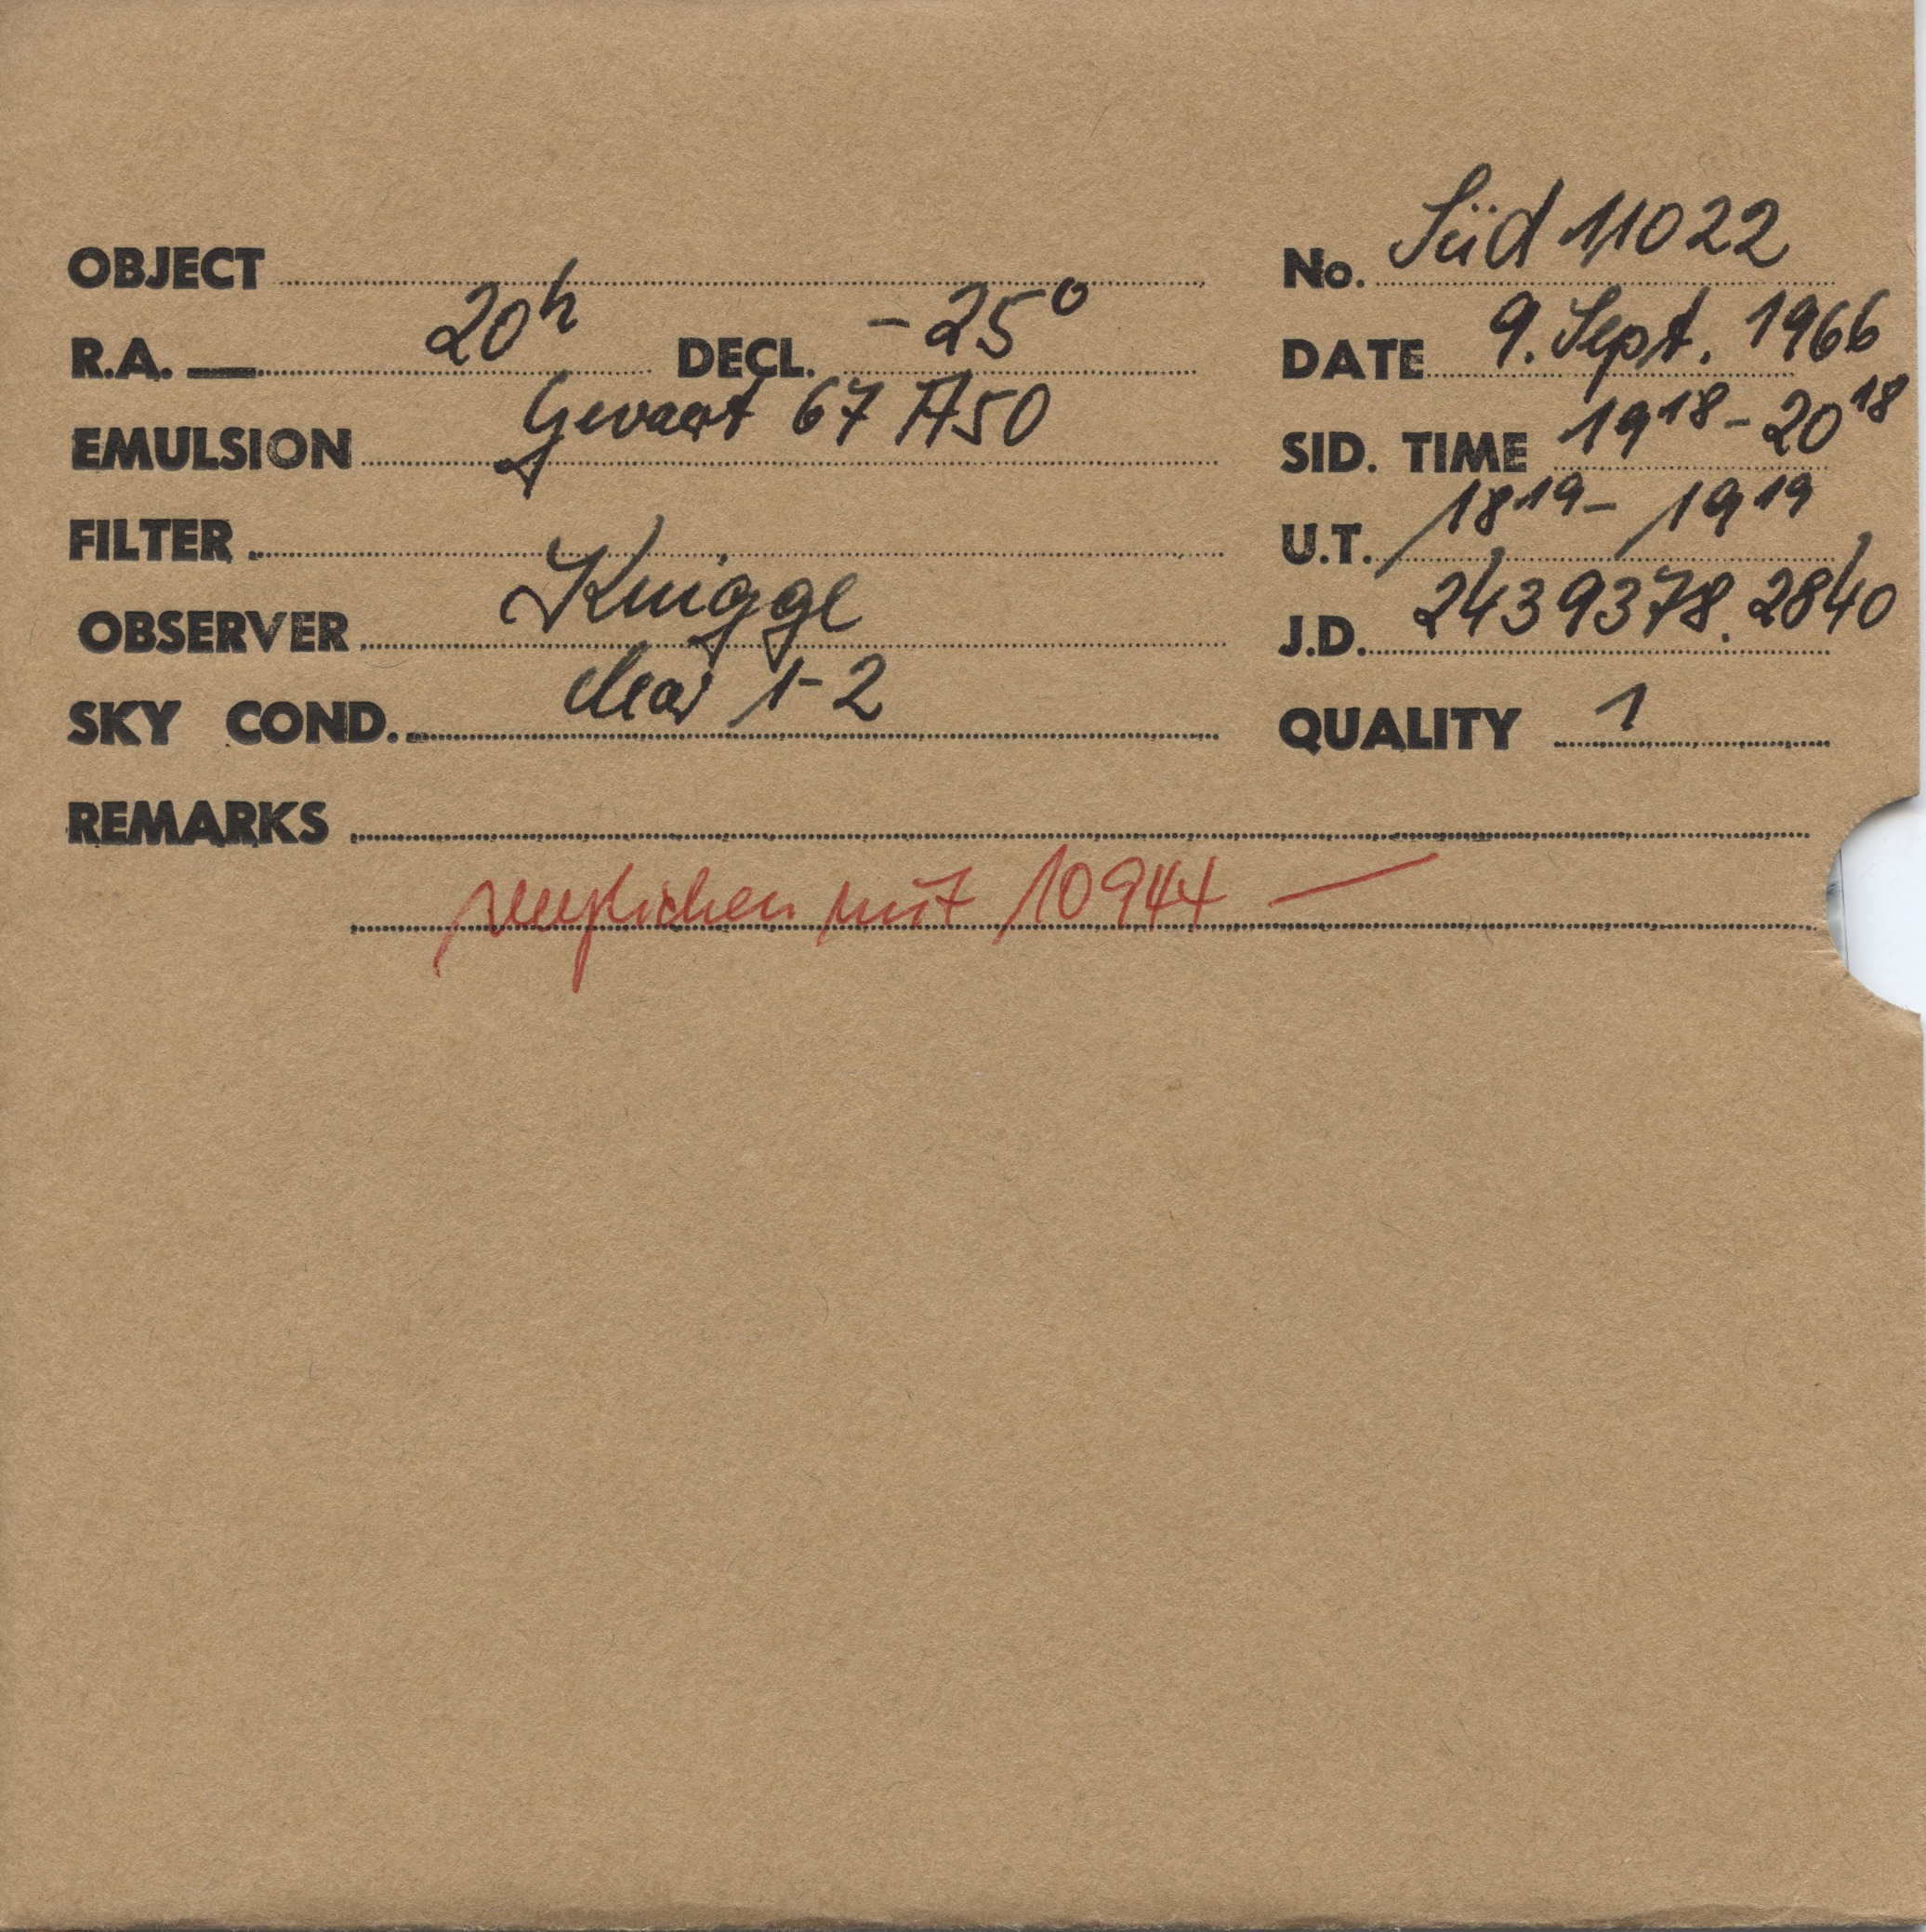 OBJECT
No. Süd 11022
R.A. 20h DECL. -25°
DATE 9. Sept. 1966
EMULSION Gevaert 67 A50
SID. TIME 19 18 - 20 18
FILTER
U.T. 18 19 - 19 19
OBSERVER Knigge
J.D. 2439378.2840
SKY COND. clear 1-2
QUALITY 1
REMARKS
verglichen mit 10944 —